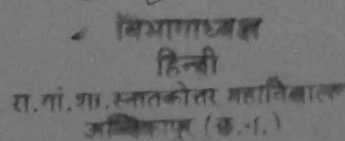 विभागाध्यक्ष
हिन्दी
रा.गां.शा.स्नातकोत्तर महाविद्यालय
अम्बिकापुर (छ.ग.)